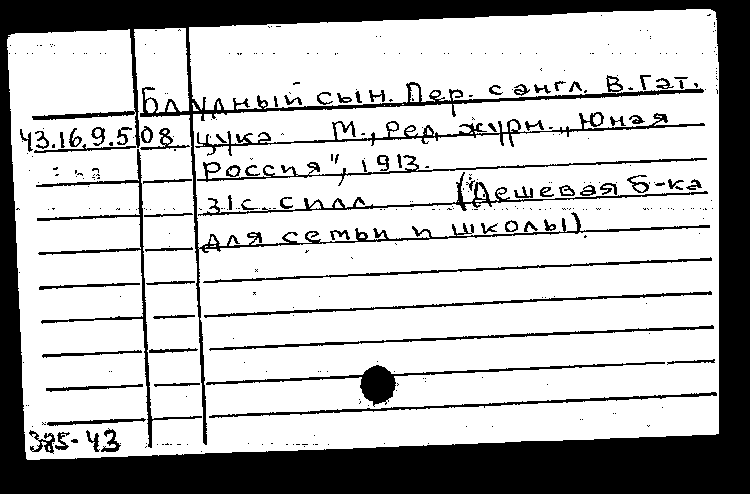 Блудный сын. Пер. с англ. В. Гат.
43.16.9.508 цука М., Ред. журн. „Юная
Россия", 1913.
31с. с илл. (Дешевая б-ка
для семьи и школы)
385-43